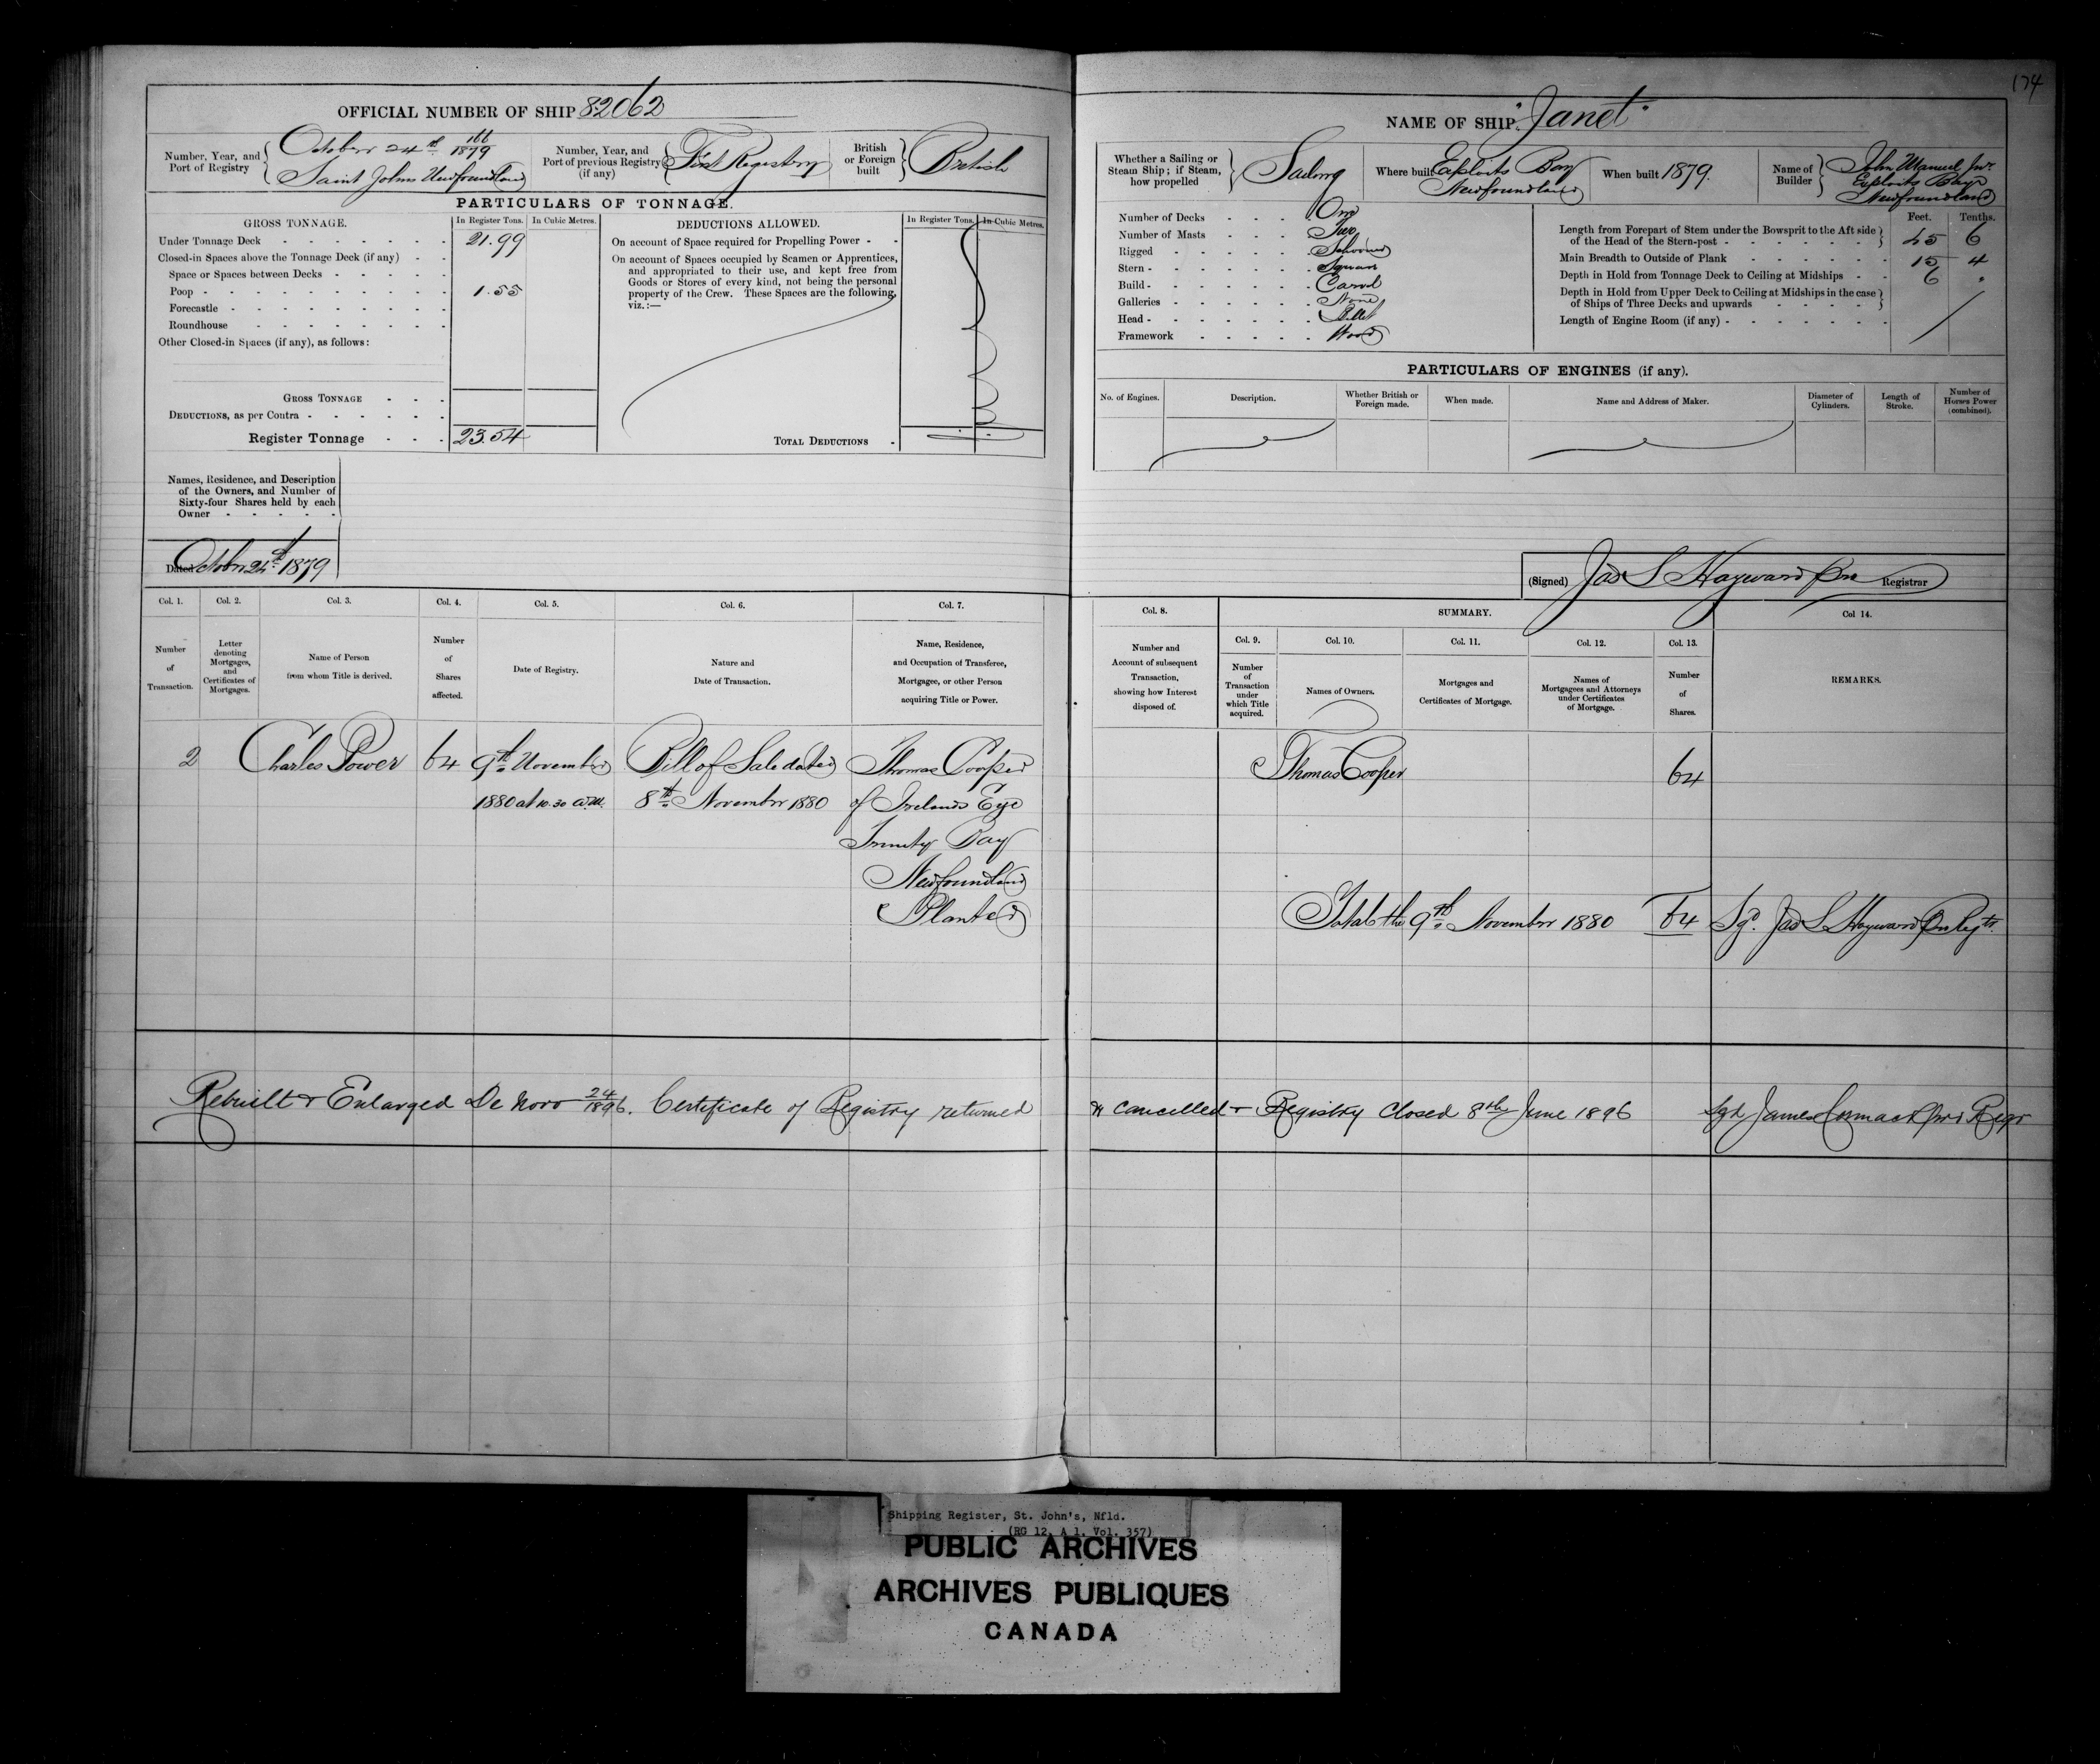 174
OFFICIAL NUMBER OF SHIP 82062
Number, Year, and Port of Registry { October 24th 166/1879
Saint Johns Newfoundland
Number, Year, and Port of previous Registry (if any) { First Registry
British or Foreign built } British
PARTICULARS OF TONNAGE.
GROSS TONNAGE. In Register Tons. In Cubic Metres.
Under Tonnage Deck 21.99
Closed-in Spaces above the Tonnage Deck (if any)
Space or Spaces between Decks
Poop 1.55
Forecastle
Roundhouse
Other Closed-in Spaces (if any), as follows:
GROSS TONNAGE
DEDUCTIONS, as per Contra
Register Tonnage 23.54
DEDUCTIONS ALLOWED. In Register Tons. In Cubic Metres.
On account of Space required for Propelling Power
On account of Spaces occupied by Seamen or Apprentices,
and appropriated to their use, and kept free from
Goods or Stores of every kind, not being the personal
property of the Crew. These Spaces are the following,
viz.:—
TOTAL DEDUCTIONS
Names, Residence, and Description
of the Owners, and Number of
Sixty-four Shares held by each
Owner
Dated October 24th 1879
NAME OF SHIP "Janet"
Whether a Sailing or Steam Ship; if Steam, how propelled } Sailing
Where built Exploits Bay
Newfoundland
When built 1879.
Name of Builder } John Manuel Jnr.
Exploits Bay
Newfoundland
Number of Decks One
Number of Masts Two
Rigged Schooner
Stern Square
Build Carvel
Galleries None
Head Billet
Framework Wood
Feet. Tenths.
Length from Forepart of Stem under the Bowsprit to the Aft side
of the Head of the Stern-post 45 6
Main Breadth to Outside of Plank 15 4
Depth in Hold from Tonnage Deck to Ceiling at Midships 6 "
Depth in Hold from Upper Deck to Ceiling at Midships in the case
of Ships of Three Decks and upwards
Length of Engine Room (if any)
PARTICULARS OF ENGINES (if any).
No. of Engines. Description. Whether British or Foreign made. When made. Name and Address of Maker. Diameter of Cylinders. Length of Stroke. Number of Horses Power (combined).
(Signed) Jas S Hayward Registrar
Col. 1. Col. 2. Col. 3. Col. 4. Col. 5. Col. 6. Col. 7.
Number of Transaction.
Letter denoting Mortgages, and Certificates of Mortgages.
Name of Person from whom Title is derived.
Number of Shares affected.
Date of Registry.
Nature and Date of Transaction.
Name, Residence, and Occupation of Transferee, Mortgagee, or other Person acquiring Title or Power.
Col. 8. SUMMARY. Col 14.
Col. 9. Col. 10. Col. 11. Col. 12. Col. 13.
Number and Account of subsequent Transaction, showing how Interest disposed of.
Number of Transaction under which Title acquired.
Names of Owners.
Mortgages and Certificates of Mortgage.
Names of Mortgagees and Attorneys under Certificates of Mortgage.
Number of Shares.
REMARKS.
2 Charles Power 64 9th November Bill of Sale dated Thomas Cooper
1880 at 10.30 a.m. 8th November 1880 of Irelands Eye
Trinity Bay
Newfoundland
Planter
Thomas Cooper 64
Total the 9th November 1880 64 Sgd. Jas S Hayward Regtr.
Rebuilt & Enlarged De Novo 24/1896. Certificate of Registry returned & cancelled & Registry Closed 8th June 1896 Sgd James Cormack Regr
Shipping Register, St. John's, Nfld.
(RG 12, A 1, Vol. 357)
PUBLIC ARCHIVES
ARCHIVES PUBLIQUES
CANADA